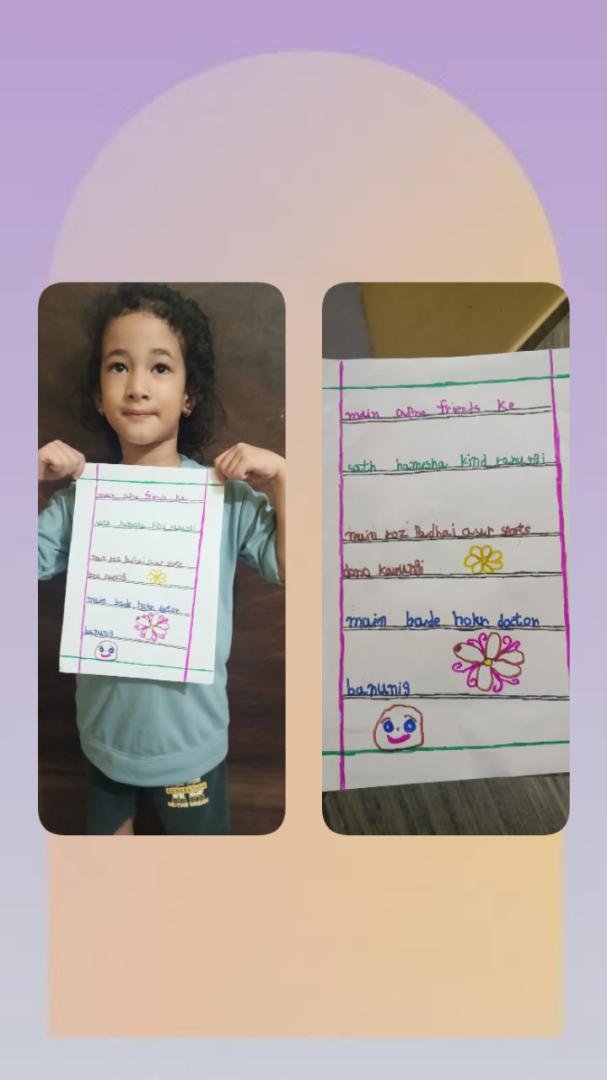 main apne friends ke
sath hamesha kind rahungi
main roz Padhai aur sports
dono karungi
main bade hokr doctor
banunig